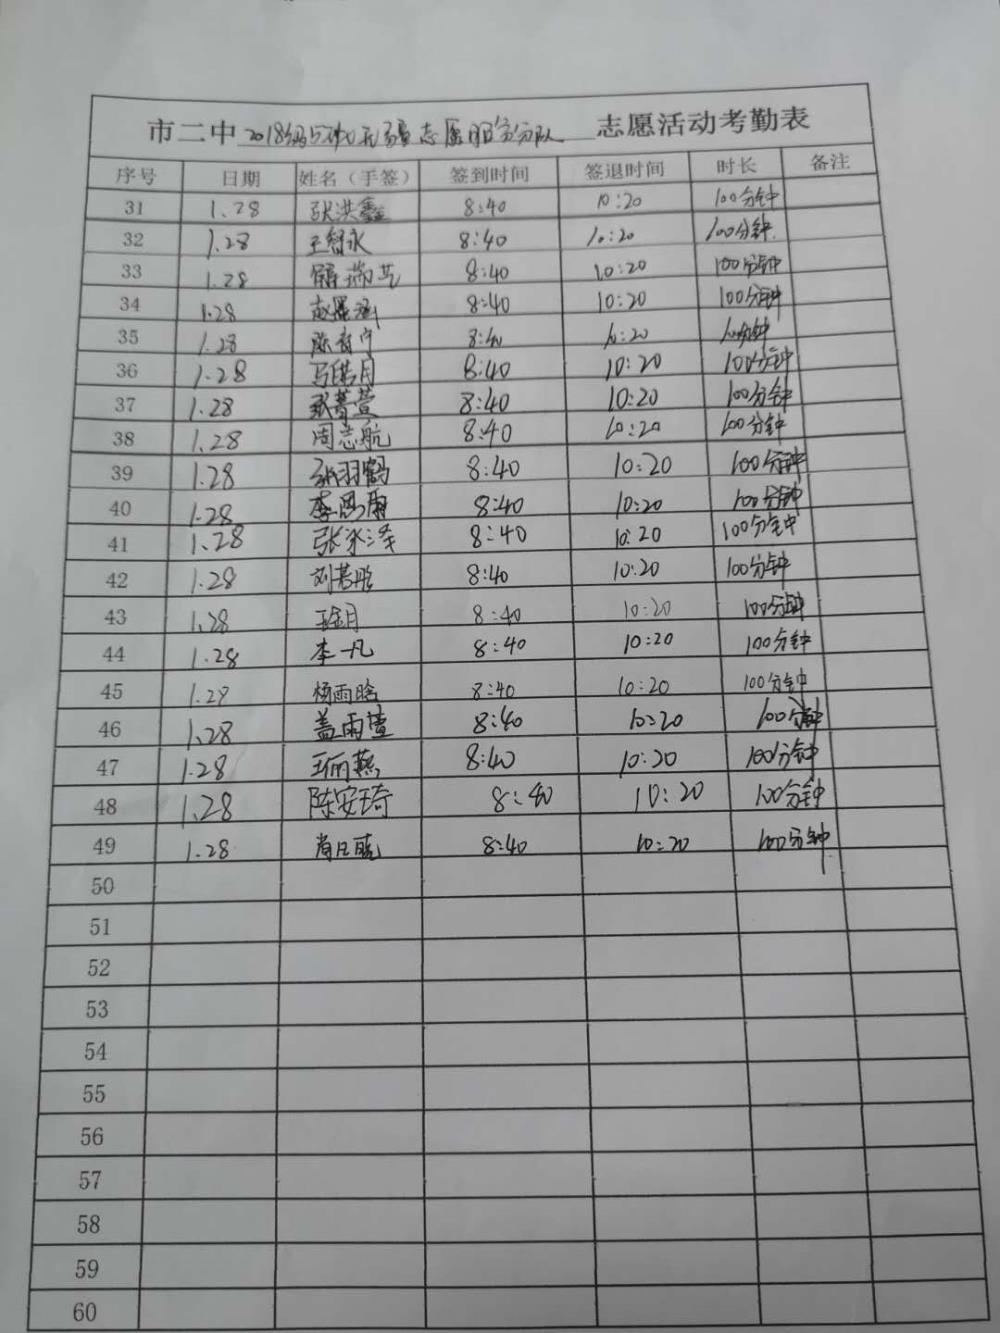 市二中 2018级5 无疆志愿服务分队 志愿活动考勤表
序号 日期 姓名（手签） 签到时间 签退时间 时长 备注
31 1.28 张洪鑫 8:40 10:20 100分钟
32 1.28 王智永 8:40 10:20 100分钟
33 1.28 8:40 10:20 100分钟
34 1.28 8:40 10:20 100分钟
35 1.28 8:40 10:20 100分钟
36 1.28 8:40 10:20 100分钟
37 1.28 8:40 10:20 100分钟
38 1.28 周志航 8:40 10:20 100分钟
39 1.28 张羽鹤 8:40 10:20 100分钟
40 1.28 8:40 10:20 100分钟
41 1.28 张家泽 8:40 10:20 100分钟
42 1.28 8:40 10:20 100分钟
43 1.28 8:40 10:20 100分钟
44 1.28 李一凡 8:40 10:20 100分钟
45 1.28 杨雨晗 8:40 10:20 100分钟
46 1.28 盖雨萱 8:40 10:20 100分钟
47 1.28 王丽燕 8:40 10:20 100分钟
48 1.28 陈安琦 8:40 10:20 100分钟
49 1.28 8:40 10:20 100分钟
50
51
52
53
54
55
56
57
58
59
60